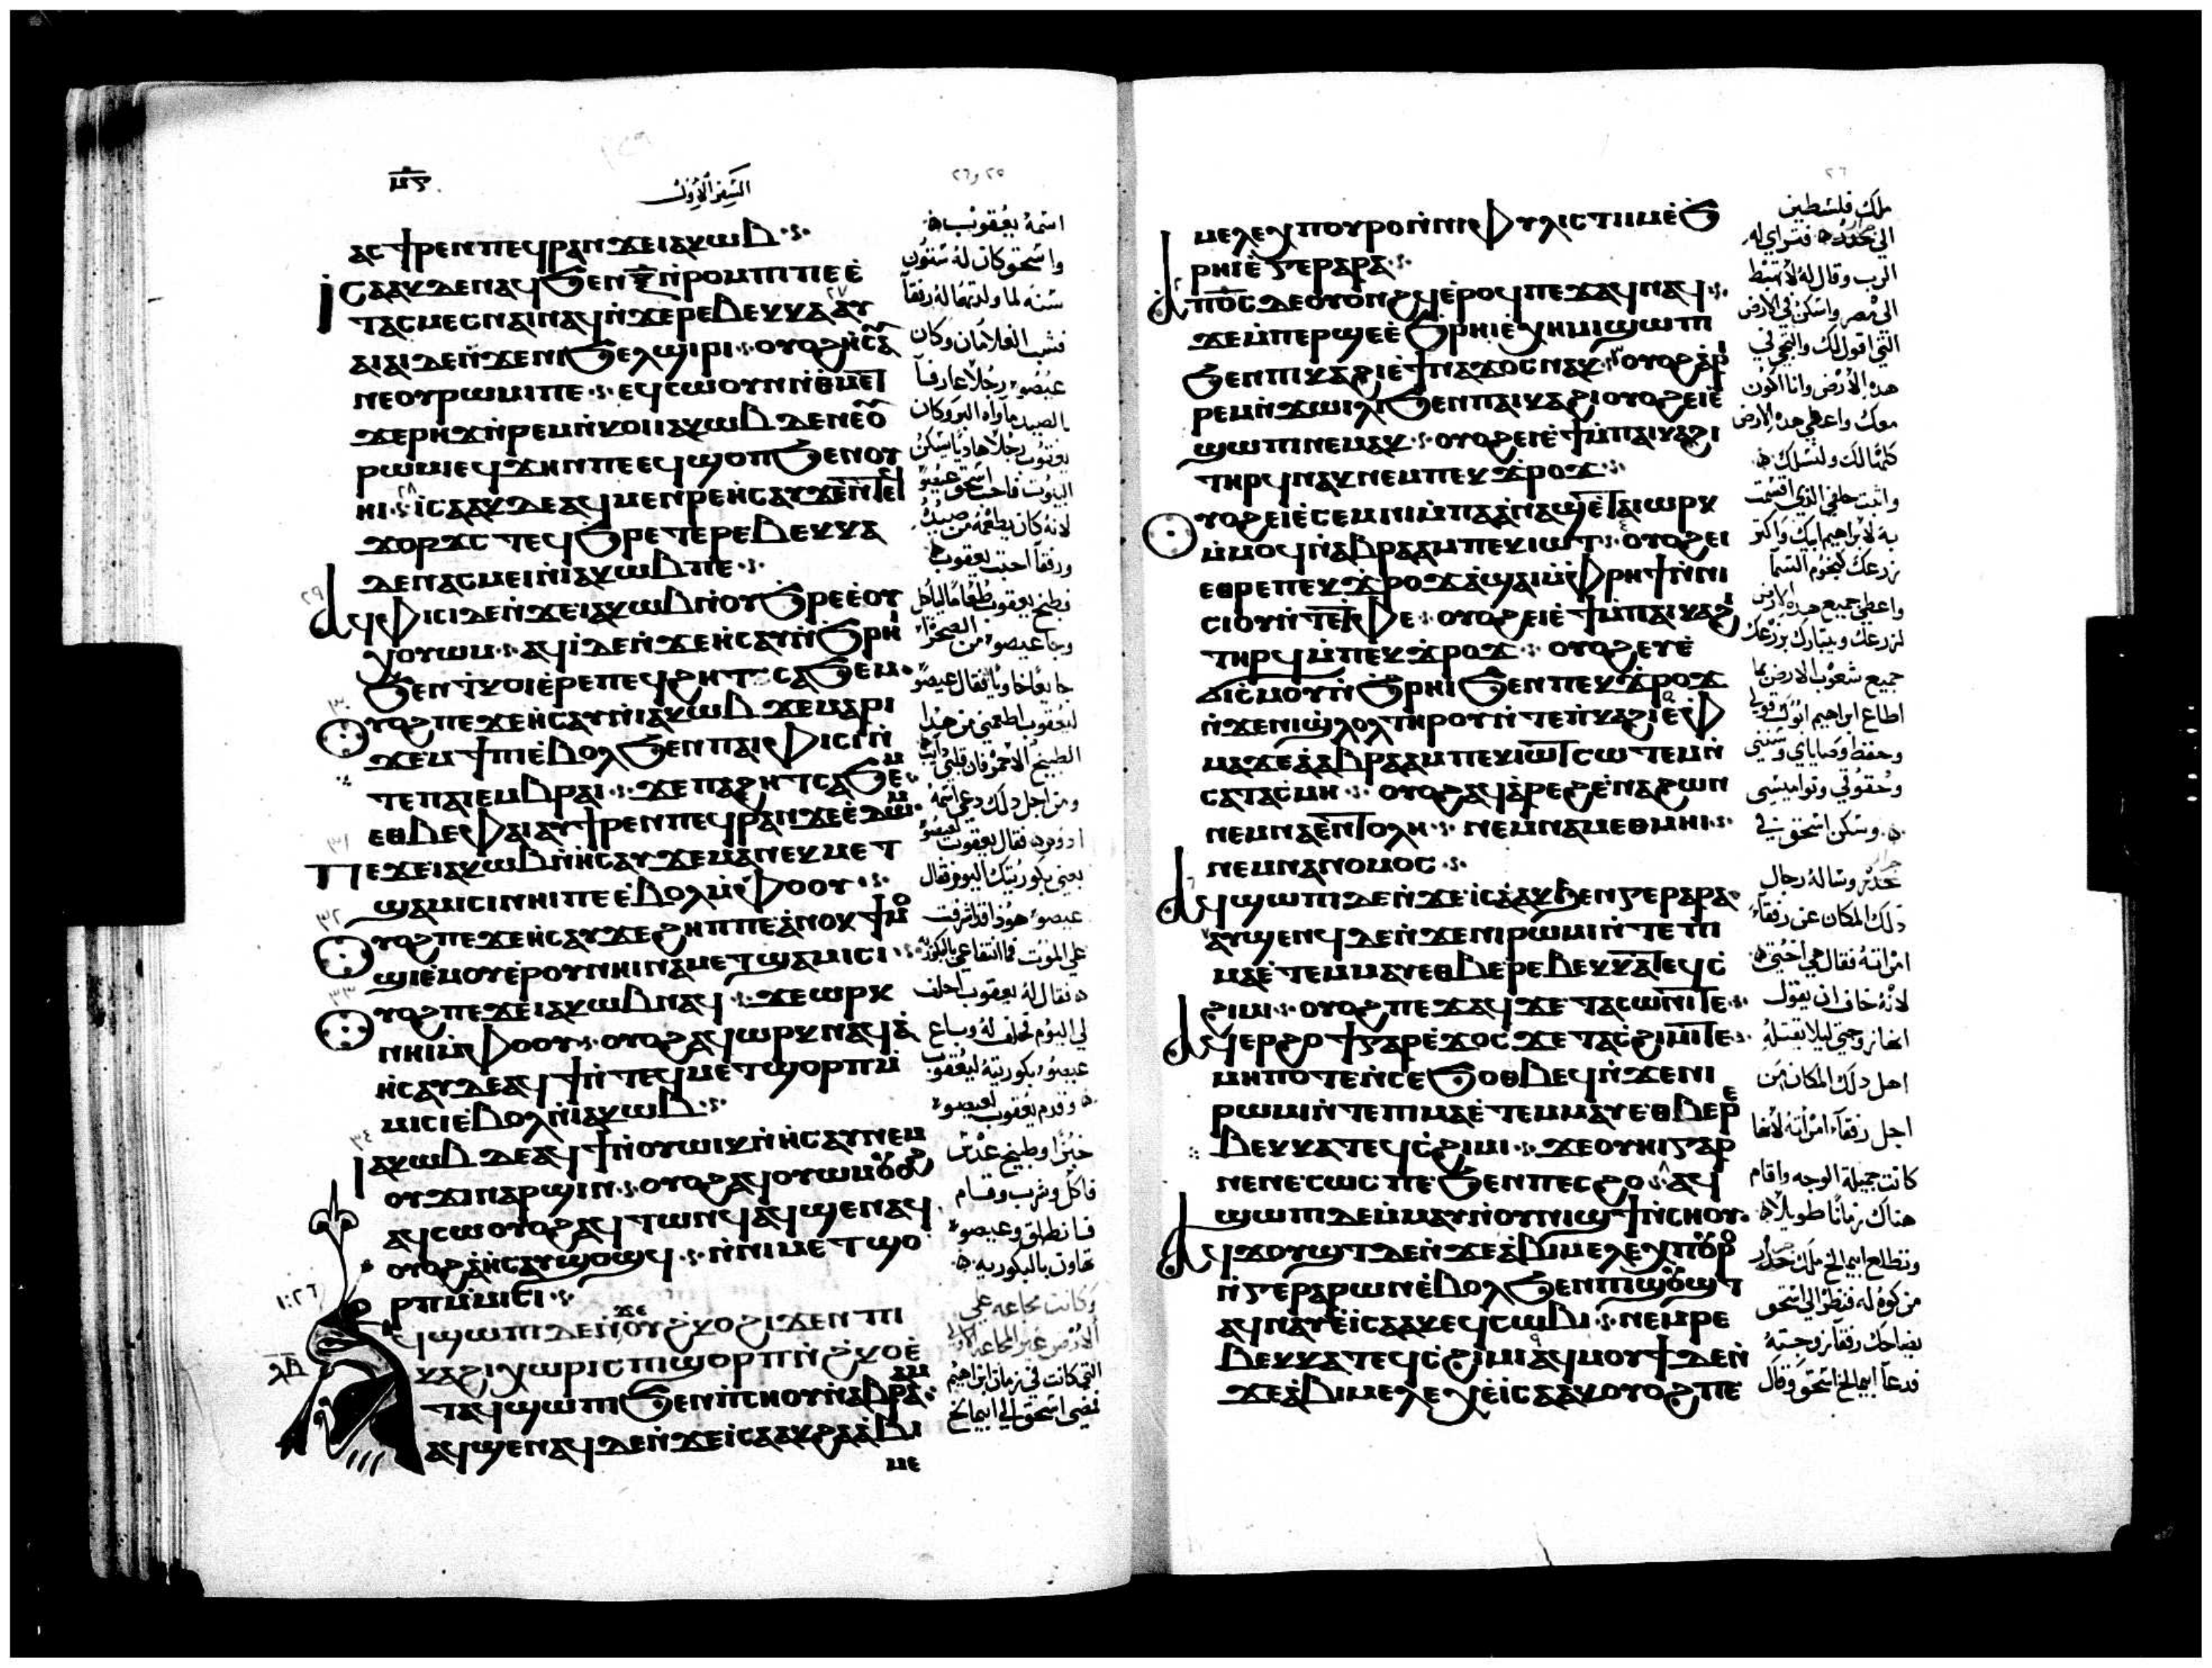 ⲙ̅ⲋ̅
السفر الاول
٢٥ و٢٦
ⲁⲥϯⲣⲉⲛⲡⲉϥⲣⲁⲛϫⲉⲓⲁⲕⲱⲃ
ⲓⲥⲁⲁⲕⲇⲉⲛⲁϥϧⲉⲛⲝ̅ⲛ̀ⲣⲟⲙⲡⲓⲡⲉⲉ̀
ⲧⲁⲥⲙⲉⲥⲛⲁⲓⲛⲁϥⲛ̀ϫⲉⲣⲉⲃⲉⲕⲕⲁⲁⲩ
ⲁⲓⲁⲓⲇⲉⲛ̀ϫⲉⲛⲓϧⲉⲗϣⲓⲣⲓ ⲟⲩⲟϩⲏ̀ⲥⲁ
ⲛⲉⲟⲩⲣⲱⲙⲓⲡⲉ ⲉϥⲥⲱⲟⲩⲛⲛ̀ⲑⲙⲉⲧ
ϫⲉⲣⲏϫⲛ̀ⲣⲉⲙⲛ̀ⲕⲟⲓⲓⲁⲕⲱⲃⲇⲉⲛⲉⲟ
ⲣⲱⲙⲓⲉϥϫⲏⲡⲡⲉⲉϥϣⲟⲡϧⲉⲛⲟⲩ
ⲏⲓ ⲓⲥⲁⲁⲕⲇⲉⲁϥⲙⲉⲛⲣⲉⲏ̀ⲥⲁⲩϫⲉⲛⲉ
ϫⲟⲣϫⲥ ⲧⲉϥϧⲣⲉⲧⲉⲣⲉⲃⲉⲕⲕⲁ
ⲇⲉⲛⲁⲥⲙⲉⲓⲛ̀ⲓⲁⲕⲱⲃⲡⲉ
ⲁϥⲫⲓⲥⲓⲇⲉⲛ̀ϫⲉⲓⲁⲕⲱⲃⲛ̀ⲟⲩϧⲣⲉⲉ̀ⲟⲩ
ⲟⲩⲱⲙ ⲁϥⲓ̀ⲇⲉⲛ̀ϫⲉⲏ̀ⲥⲁⲩⲛ̀ϧⲣⲏ
ϧⲉⲛⲧⲕⲟⲓⲉ̀ⲣⲉⲡⲉϥϩⲏⲧ ⲥⲁϧⲉⲙ
ⲟⲩⲟϩⲡⲉϫⲉⲏ̀ⲥⲁⲩⲛ̀ⲓⲁⲕⲱⲃ ϫⲉⲙⲁⲣⲓ
ϫⲉⲙϯⲡⲓⲉ̀ⲃⲟⲗϧⲉⲛⲡⲁⲓⲫⲓⲥⲓⲛ̀
ⲧⲉⲡⲁⲓⲉⲙⲃⲣⲁⲓ ϫⲉⲡⲁϩⲏⲧⲥⲁϧⲉⲙ
ⲉⲑⲃⲉⲫⲁⲓⲁⲩϯⲣⲉⲛⲡⲉϥⲣⲁⲛϫⲉⲉ̀ⲇⲱⲙ
ⲡⲉϫⲉⲓⲁⲕⲱⲃⲛ̀ⲏⲥⲁⲩ ϫⲉⲙⲁⲛⲉⲕⲙⲉⲧ
ϣⲁⲙⲓⲥⲓⲛⲏⲓⲡⲉⲉ̀ⲃⲟⲗⲙ̀ⲫⲟⲟⲩ
ⲟⲩⲟϩⲡⲉϫⲉⲏ̀ⲥⲁⲩϫⲉϩⲏⲡⲡⲉⲁ̀ⲛⲟⲕϯⲙⲟ
ϣⲓⲉ̀ⲙⲟⲩⲉ̀ⲣⲟⲩⲛⲏⲓⲛⲁⲙⲉⲧϣⲁⲙⲓⲥⲓ
ⲟⲩⲟϩⲡⲉϫⲉⲓⲁⲕⲱⲃⲛⲁϥ ϫⲉⲱⲣⲕ
ⲛⲏⲓⲙ̀ⲫⲟⲟⲩ ⲟⲩⲟϩⲁϥⲱⲣⲕⲛⲁϥⲁ̀
ⲏ̀ⲥⲁⲩⲇⲉⲁϥϯⲛ̀ⲧⲉϥⲙⲉⲧϣⲟⲣⲡⲙ̀
ⲙⲓⲥⲓⲉ̀ⲃⲟⲗⲛ̀ⲓⲁⲕⲱⲃ
ⲓⲁⲕⲱⲃ ⲇⲉⲁϥϯⲛ̀ⲟⲩⲱⲓⲕⲛ̀ⲏⲥⲁⲩⲛⲉⲙ
ⲟⲩϫⲓⲛⲁⲣϣⲓⲛ ⲟⲩⲟϩⲁϥⲟⲩⲱⲙⲟⲩⲟϩ
ⲁϥⲥⲱⲟⲩⲟϩⲁϥⲧⲱⲛϥⲁϥϣⲉⲛⲁϥ
ⲟⲩⲟϩⲁ̀ⲏⲥⲁⲩϣⲟϣϥ ⲛ̀ⲛⲓⲙⲉⲧϣⲟ
ⲣⲡⲙ̀ⲙⲓⲥⲓ
ⲁϥϣⲱⲡⲓⲇⲉⲛ̀ϫⲉⲟⲩϩⲕⲟϩⲓϫⲉⲛⲡⲓ
ⲕⲁϩⲓⲭⲱⲣⲓⲥⲡⲓϣⲟⲣⲡⲛ̀ϩⲕⲟⲉ̀
ⲧⲁϥϣⲱⲡⲓϧⲉⲛⲡ̀ⲥⲏⲟⲩⲛ̀ⲁⲃⲣⲁⲁⲙ
ⲁϥϣⲉⲛⲁϥⲇⲉⲛ̀ϫⲉⲓⲥⲁⲁⲕϩⲁⲁ̀ⲃⲓ
ⲙⲉ
اسمه يعقوب
واسحق كان له ستون
سنه لما ولدتهما له رفقا
فشب الغلامان وكان
عيصو رجلا عارفا
بالصيد ماواه البر وكان
يعقوب رجلا هاديا يسكن
البيوت فاحب اسحق عيصو
لانه كان يطعمه من صيده
ورفقا احبت يعقوب
فطبخ يعقوب طعاما لياكل
وجا عيصو من الصحرا
جايعا خاويا فقال عيصو
ليعقوب اطعمني من هذا
الطبيخ الاحمر فان قلبي
ومن اجل ذلك دعي اسمه
ادوم فقال يعقوب لعيصو
بعني بكوريتك اليوم فقال
عيصو هوذا قد اشرفت
علي الموت فما انتفاعي بالبكور
فقال له يعقوب احلف
لي اليوم فحلف له وباع
عيصو بكوريته ليعقوب
وقدم يعقوب لعيصو
خبزا وطبيخ عدس
فاكل وشرب وقام
فانطلق وعيصو
تهاون بالبكوريه
وكانت مجاعه علي
الارض غير المجاعه
التي كانت في زمان ابراهيم
فمضي اسحق الي ابيمالخ
٢٦
ⲙⲉⲗⲉⲭⲡⲟⲩⲣⲟⲛ̀ⲛⲓⲫⲩⲗⲓⲥⲧⲓⲓⲙⲉ̀ϧ
ⲣⲏⲓⲉ̀ⲅⲉⲣⲁⲣⲁ
ⲁⲡⲟ̅ⲥ̅ⲇⲉⲟⲩⲟⲛϩϥⲉ̀ⲣⲟϥⲡⲉϫⲁϥⲛⲁϥ
ϫⲉⲙ̀ⲡⲉⲣϣⲉⲉ̀ϧⲣⲏⲓⲉ̀ⲭⲏⲙⲓϣⲱⲡⲓ
ϧⲉⲛⲡⲓⲕⲁϩⲓⲉ̀ϯⲛⲁϫⲟⲥⲛⲁⲕ ⲟⲩⲟϩⲁⲣⲓ
ⲣⲉⲙⲛ̀ϫⲱⲓⲗⲓϧⲉⲛⲡⲁⲓⲕⲁϩⲓⲟⲩⲟϩⲉⲓⲉ̀
ϣⲱⲡⲓⲛⲉⲙⲁⲕ ⲟⲩⲟϩⲉⲓⲉ̀ϯⲙ̀ⲡⲁⲓⲕⲁϩⲓ
ⲧⲏⲣϥⲛⲁⲕⲛⲉⲙⲡⲉⲕϫⲣⲟϫ
ⲟⲩⲟϩⲉⲓⲉ̀ⲥⲉⲙⲛⲓⲙ̀ⲡⲁⲁ̀ⲛⲁϣⲉⲧⲁⲓⲱⲣⲕ
ⲙ̀ⲙⲟϥⲛ̀ⲁⲃⲣⲁⲁⲙⲡⲉⲕⲓⲱⲧ ⲟⲩⲟϩⲉⲓ
ⲉⲑⲣⲉⲡⲉⲕϫⲣⲟϫⲁ̀ϣⲁⲓⲙ̀ⲫⲣⲏϯⲛ̀ⲛⲓ
ⲥⲓⲟⲩⲛ̀ⲧⲉⲧⲫⲉ ⲟⲩⲟϩⲉⲓⲉ̀ϯⲙ̀ⲡⲁⲓⲕⲁϩⲓ
ⲧⲏⲣϥⲙ̀ⲡⲉⲕϫⲣⲟϫ ⲟⲩⲟϩⲉⲩⲉ̀
ϭⲓⲥⲙⲟⲩⲛ̀ϧⲣⲏⲓϧⲉⲛⲡⲉⲕϫⲣⲟϫ
ⲛ̀ϫⲉⲛⲓϣⲗⲟⲗⲧⲏⲣⲟⲩⲛ̀ⲧⲉⲡⲕⲁϩⲓⲉ̀ⲫ
ⲙⲁϫⲉⲁ̀ⲁⲃⲣⲁⲁⲙⲡⲉⲕⲓⲱⲧⲥⲱⲧⲉⲙⲛ̀
ⲥⲁⲧⲁⲥⲙⲏ ⲟⲩⲟϩⲁϥⲁ̀ⲣⲉϩⲉ̀ⲛⲁϩⲱⲛ
ⲛⲉⲙⲛⲁⲉⲛⲧⲟⲗⲏ ⲛⲉⲙⲛⲁⲙⲉⲑⲙⲏⲓ
ⲛⲉⲙⲛⲁⲛⲟⲙⲟⲥ
ⲁϥϣⲱⲡⲓⲇⲉⲛ̀ϫⲉⲓⲥⲁⲁⲕϧⲉⲛⲅⲉⲣⲁⲣⲁ
ⲁⲩϣⲉⲛϥⲇⲉⲛ̀ϫⲉⲛⲓⲣⲱⲙⲓⲛ̀ⲧⲉⲡⲓ
ⲙⲁⲉ̀ⲧⲉⲙⲙⲁⲩⲉⲑⲃⲉⲣⲉⲃⲉⲕⲕⲁⲧⲉϥⲥ̀
ϩⲓⲙⲓ ⲟⲩⲟϩⲡⲉϫⲁϥϫⲉⲧⲁⲥⲱⲛⲓⲧⲉ
ⲁϥⲉⲣϩⲟϯⲅⲁⲣⲉ̀ϫⲟⲥϫⲉⲧⲁⲥϩⲓⲙⲓⲧⲉ
ⲙⲏⲡⲟⲧⲉⲛ̀ⲥⲉϧⲟⲑⲃⲉϥⲛ̀ϫⲉⲛⲓ
ⲣⲱⲙⲓⲛ̀ⲧⲉⲡⲓⲙⲁⲉ̀ⲧⲉⲙⲙⲁⲩⲉⲑⲃⲉⲣⲉ
ⲃⲉⲕⲕⲁⲧⲉϥⲥϩⲓⲙⲓ ϫⲉⲟⲩⲏⲓⲅⲁⲣ
ⲛⲉⲛⲉⲥⲱⲥⲡⲉϧⲉⲛⲡⲉⲥϩⲟ ⲁϥ
ϣⲱⲡⲓⲇⲉⲙ̀ⲙⲁⲩⲛ̀ⲟⲩⲛⲓϣϯⲛ̀ⲥⲏⲟⲩ
ⲁϥϫⲟⲩϣⲧⲇⲉⲛ̀ϫⲉⲁ̀ⲃⲓⲙⲉⲗⲉⲭⲡⲟⲩⲣⲟ
ⲛ̀ⲅⲉⲣⲁⲣⲱⲛⲉ̀ⲃⲟⲗϧⲉⲛⲡⲓϣⲟⲩϣⲧ
ⲁϥⲛⲁⲩⲉ̀ⲓⲥⲁⲁⲕⲉϥⲥⲱⲃⲓ ⲛⲉⲙⲣⲉ
ⲃⲉⲕⲕⲁⲧⲉϥⲥ̀ϩⲓⲙⲓⲁϥⲙⲟⲩϯⲇⲉⲛ̀
ϫⲉⲁ̀ⲃⲓⲙⲉⲗⲉⲭⲉ̀ⲓⲥⲁⲁⲕⲟⲩⲟϩⲡⲉ
ملك فلسطين
الي فتراي له
الرب وقال له لا تهبط
الي مصر واسكن في الارض
التي اقول لك والتجي في
هذه الارض وانا اكون
معك واعطي هذه الارض
كلها لك ولنسلك
واثبت حلفي الذي اقسمت
به لابراهيم ابيك واكثر
زرعك كنجوم السما
واعطي جميع هذه الارض
لزرعك ويتبارك بزرعك
جميع شعوب الارض بما
اطاع ابراهيم ابوك قولي
وحفظ وصاياي وسنني
وحقوقي ونواميسي
وسكن اسحق في
وساله رجال
ذلك المكان عن رفقا
امراته فقال هي اختي
لانه خاف ان يقول
انها زوجتي ليلا يقتله
اهل ذلك المكان من
اجل رفقا امراته لانها
كانت جميله الوجه واقام
هناك زمانا طويلا
وتطلع ابيمالخ ملك
من كوه له فنظر الي اسحق
يضاحك رفقا زوجته
فدعا ابيمالخ اسحق وقال